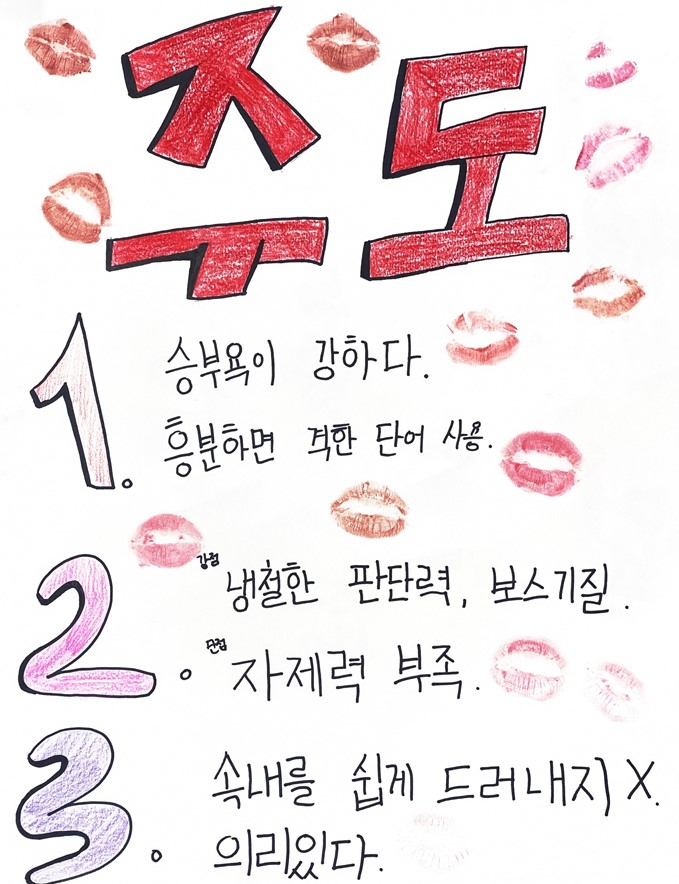 주도
1. 승부욕이 강하다.
흥분하면 격한 단어 사용.
2. 강점 냉철한 판단력, 보스기질.
단점 자제력 부족.
3. 속내를 쉽게 드러내지 X.
의리있다.